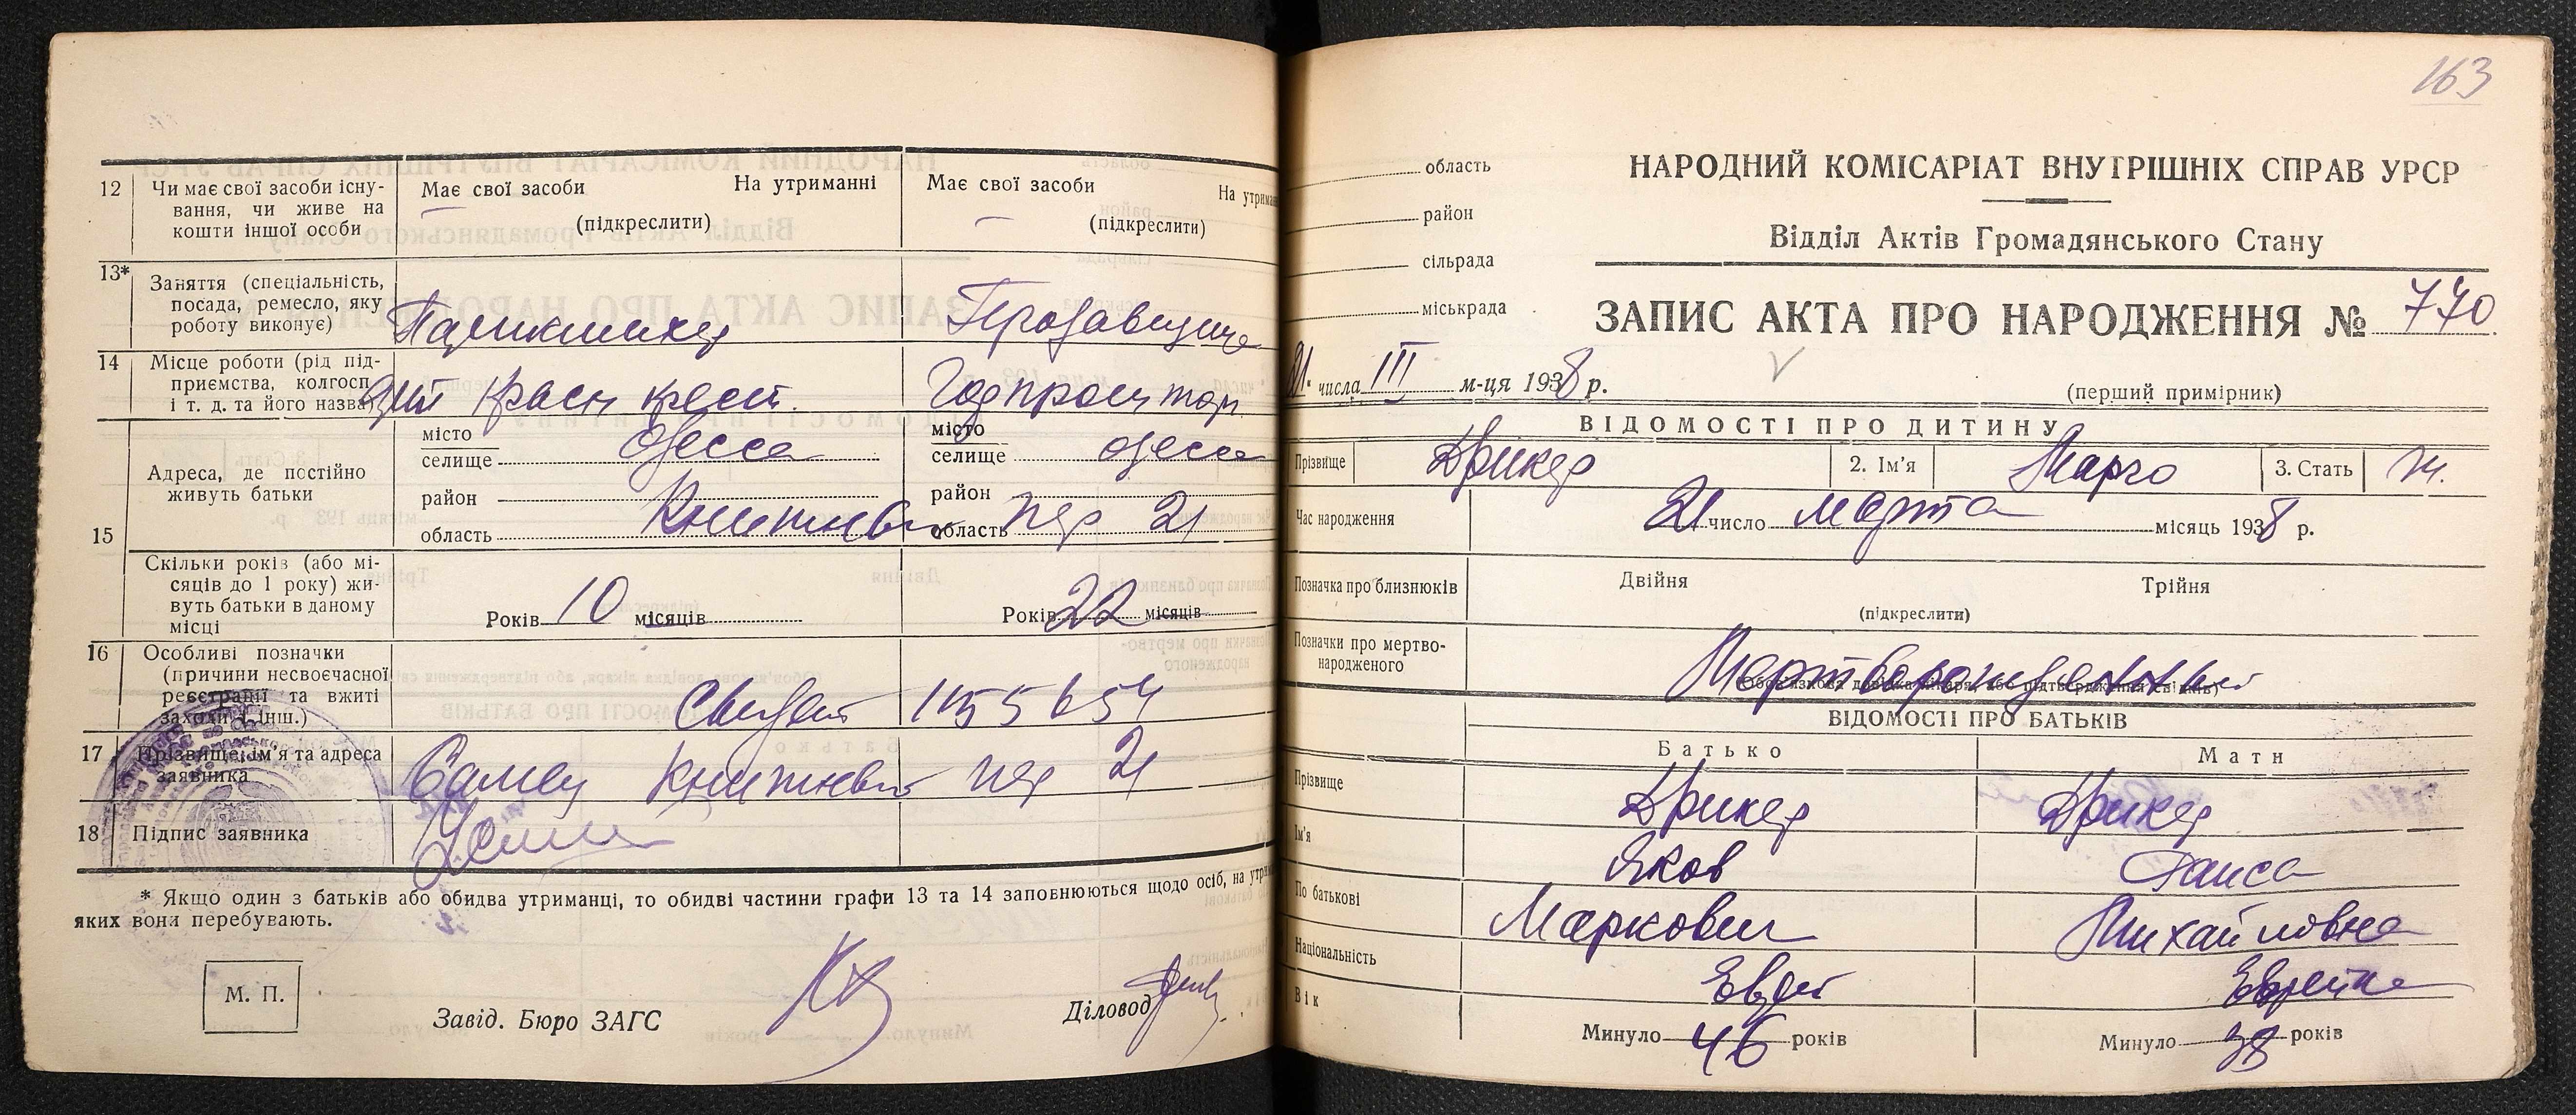 12 Чи має свої засоби існу-
вання, чи живе на
кошти іншої особи
Має свої засоби На утриманні
(підкреслити)
Має свої засоби На утриман
(підкреслити)
13* Заняття (спеціальність,
посада, ремесло, яку
роботу виконує)
Парикмахер
Продавщица
14 Місце роботи (рід під-
приємства, колгосп
і т. д. та його назва)
Красн крест.
Горпромторг
15 Адреса, де постійно
живуть батьки
місто
селище Одесса
район
область
місто
селище Одесса
район
область
Книжный пер 21
Скільки років (або мі-
сяців до 1 року) жи-
вуть батьки в даному
місці
Років 10 місяців
Років 22 місяців
16 Особливі позначки
(причини несвоєчасної
реєстрації та вжиті
заходи й інш.)
17 Прізвище, ім'я та адреса
заявника
Книжный пер 21
18 Підпис заявника
* Якщо один з батьків або обидва утриманці, то обидві частини графи 13 та 14 заповнюються щодо осіб, на утрим
яких вони перебувають.
М. П.
Завід. Бюро ЗАГС
Діловод
163
область
район
сільрада
міськрада
НАРОДНИЙ КОМІСАРІАТ ВНУТРІШНІХ СПРАВ УРСР
Відділ Актів Громадянського Стану
ЗАПИС АКТА ПРО НАРОДЖЕННЯ № 770
21 числа III м-ця 1938 р.
(перший примірник)
ВІДОМОСТІ ПРО ДИТИНУ
Прізвище Дрикер 2. Ім'я Марго 3. Стать ж.
Час народження 21 число марта місяць 1938 р.
Позначка про близнюків Двійня Трійня
(підкреслити)
Позначки про мертво-
народженого
Мертворожденный
(Обов'язкова довідка лікаря, або підтвердження свідків)
ВІДОМОСТІ ПРО БАТЬКІВ
Батько Мати
Прізвище Дрикер Дрикер
Ім'я Яков Раиса
По батькові Маркович Михайловна
Національність Еврей Еврейка
Вік Минуло 46 років Минуло 38 років